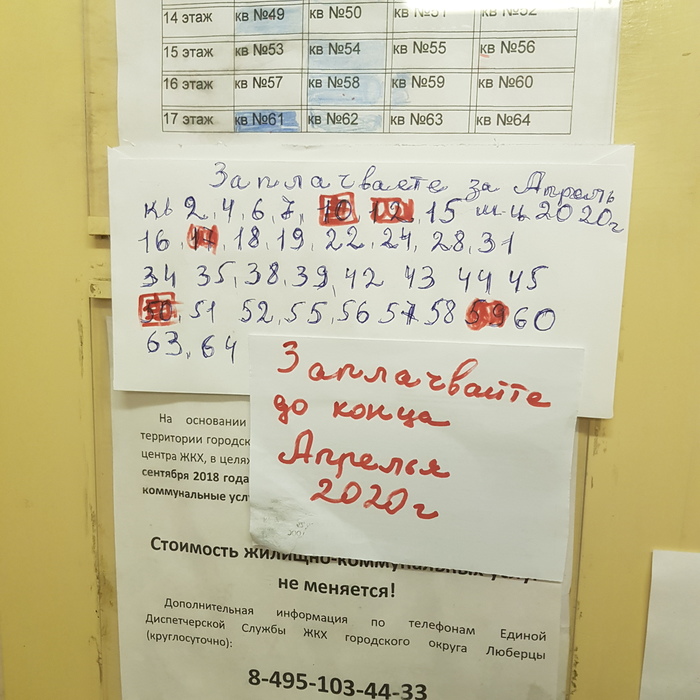 14 этаж кв №49 кв №50 кв №51 кв №52
15 этаж кв №53 кв №54 кв №55 кв №56
16 этаж кв №57 кв №58 кв №59 кв №60
17 этаж кв №61 кв №62 кв №63 кв №64
Заплачваете за Апрель
кв 2, 4, 6, 7, 10, 12, 15 м-ц 2020г
16, 17, 18, 19, 22, 24, 28, 31
34 35, 38, 39, 42 43 44 45
50, 51 52, 55, 56 57 58 59 60
63, 64
Заплачвайте
до конца
Апрелья
2020г
На основании
территории городск
центра ЖКХ, в целях
сентября 2018 года
коммунальные услу
Стоимость жилищно-коммунальных услуг
не меняется!
Дополнительная информация по телефонам Единой
Диспетчерской Службы ЖКХ городского округа Люберцы
(круглосуточно):
8-495-103-44-33